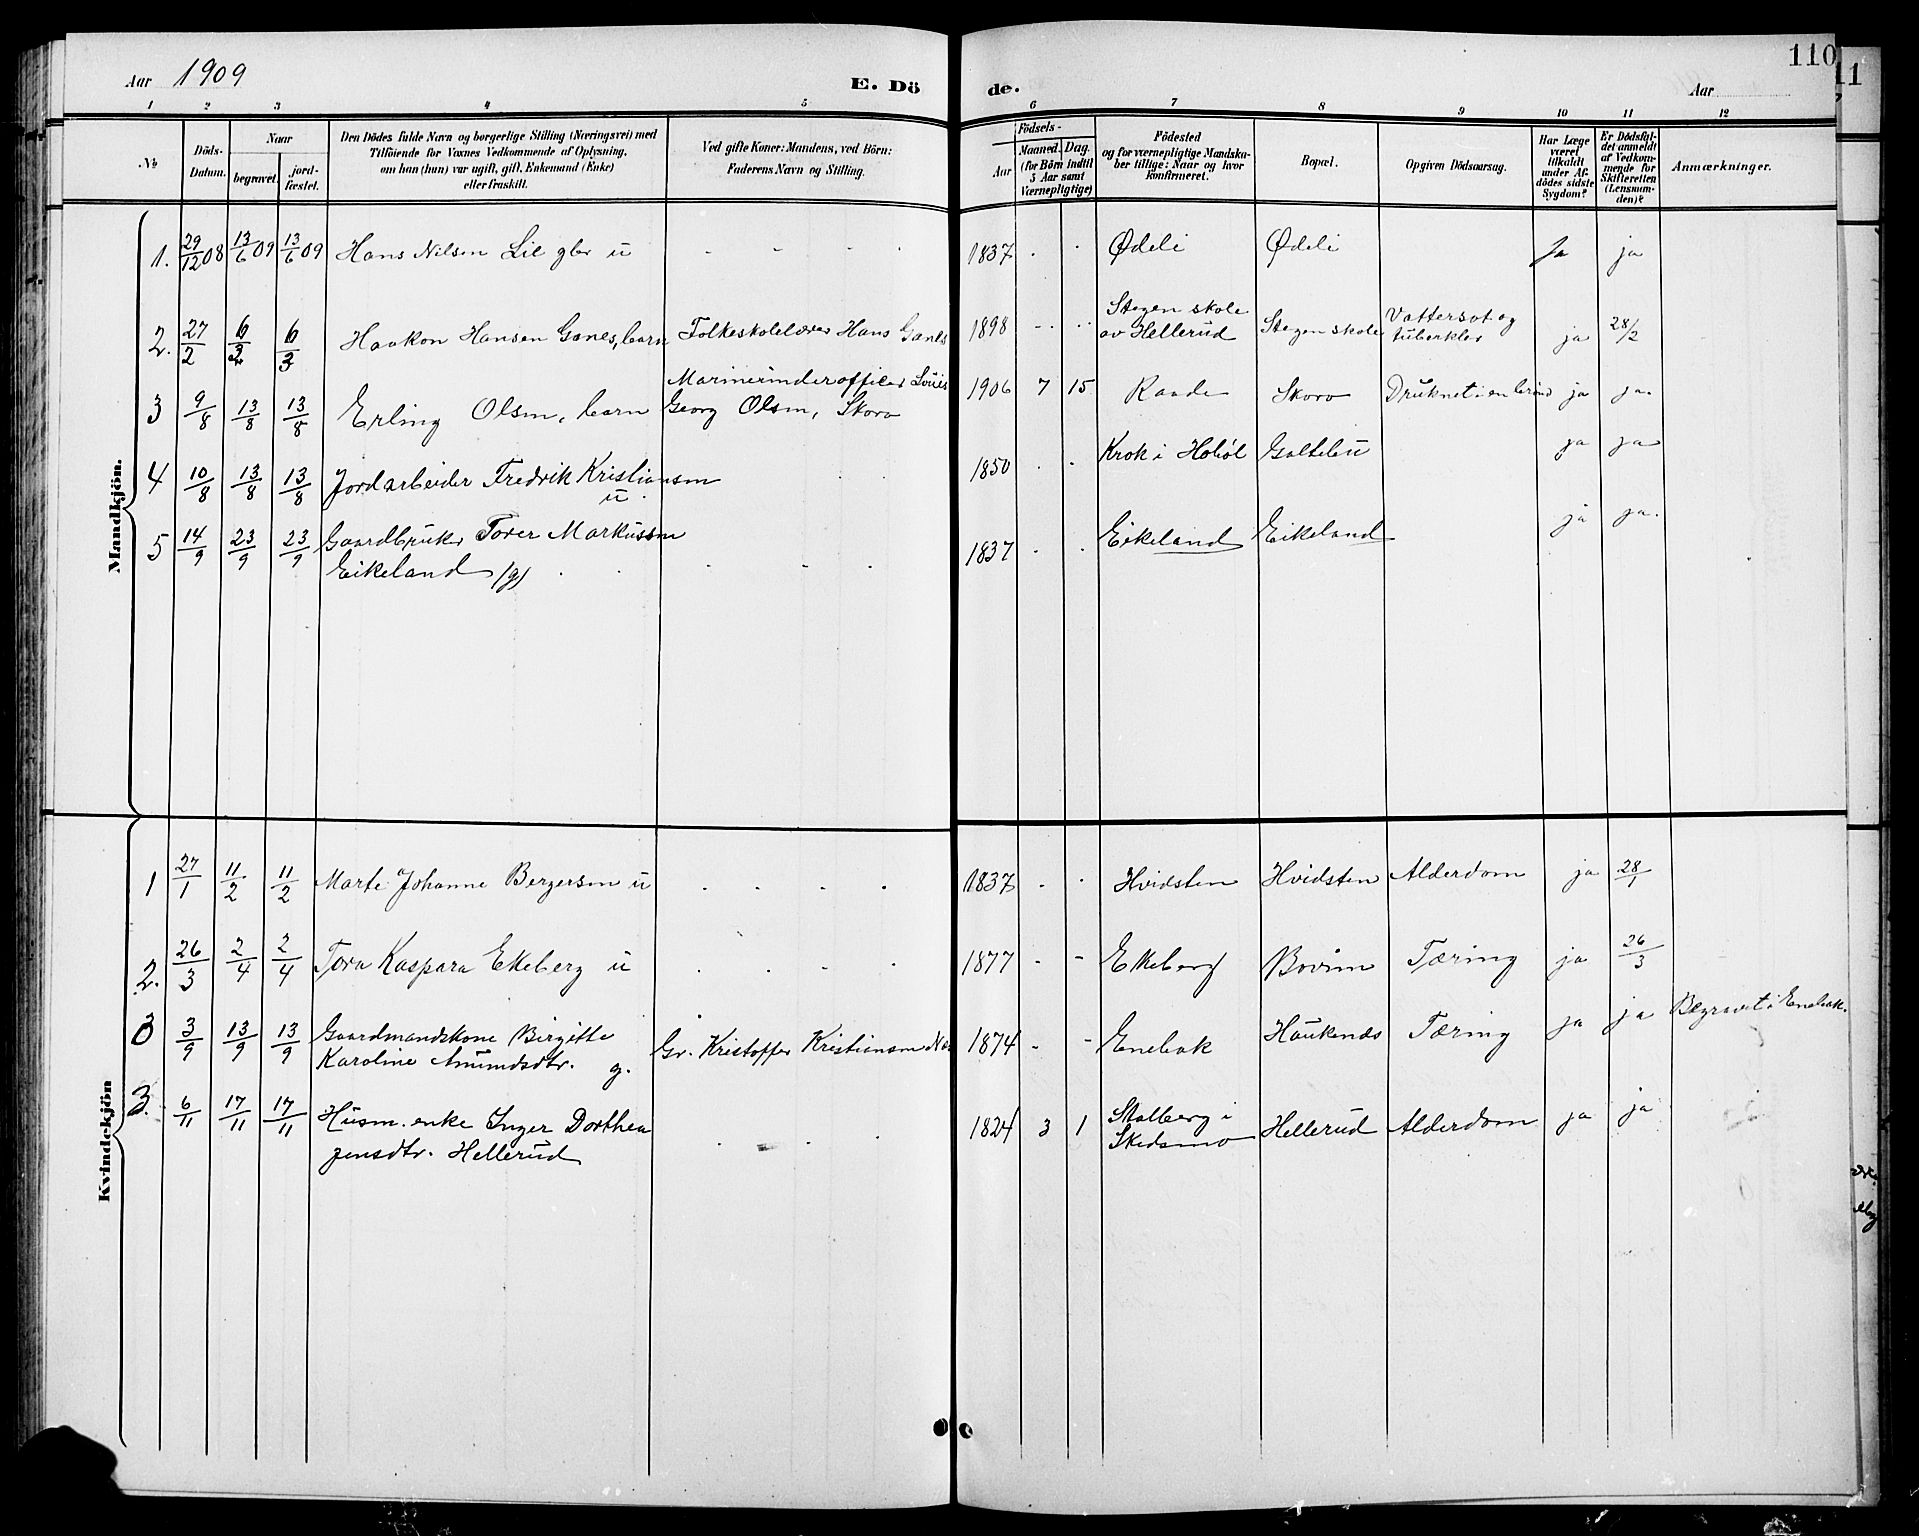 110
11
Aar 1909
E. Dö
de.
Aar
1 2 3 4 5 6 7 8 9 10 11 12
No
Döds-
Datum.
Naar
begravet.
jord-
fæstet.
Den Dödes fulde Navn og borgerlige Stilling (Næringsvei) med
Tilföiende for Voxnes Vedkommende af Oplysning,
om han (hun) var ugift, gift, Enkemand (Enke)
eller fraskilt.
Ved gifte Koner: Mandens, ved Börn:
Faderens Navn og Stilling.
Födsels-
Aar
Maaned. Dag.
(for Börn indtil
5 Aar samt
Værnepligtige)
Födested
og for værnepligtige Mandska-
ber tillige: Naar og hvor
konfirmeret.
Bopæl.
Opgiven Dödsaarsag.
Har Læge
været
tilkaldt
under Af-
dödes sidste
Sygdom?
Er Dödsfal-
det anmeldt
af Vedkom-
mende for
Skifteretten
(Lensman-
den)?
Anmærkninger.
Mandkjön.
1. 29/12 08 13/6 09 13/6 09 Hans Nilsen Lie gbr u 1837 Ødeli Ødeli Ja ja
2. 27/2 6/3 6/3 Haakon Hansen Ganes, barn Folkeskolelærer Hans Ganes 1898 Stegen skole
av Hellerud Stegen skole Vattersot og
tuberklos ja 28/2
Marineunderofficer Louis
3 9/8 13/8 13/8 Erling Olsen, barn Georg Olsen, Skoro 1906 7 15 Raade Skoro Druknet i en brönd ja ja.
4 10/8 13/8 13/8 Jordarbeider Fredrik Kristiansen
u. 1850 Krok i Hobøl Galtebu ja ja
5 14/9 23/9 23/9 Gaardbruker Torer Markussen
Eikeland (g) 1837 Eikeland Eikeland ja ja.
Kvindekjön
1 27/1 11/2 11/2 Marte Johanne Bergersen u 1837 Hvidsten Hvidsten Alderdom ja 28/1
2. 26/3 2/4 2/4 Tora Kaspara Ekeberg u 1877 Ekeberg Bovim Tæring ja 26/3
3 3/9 13/9 13/9 Gaardmandskone Birgitte
Karoline Amundsdtr. g. Gr. Kristoffer Kristiansen 1874 Enebak Haukenes Tæring ja ja Begravet i Enebak.
3. 6/11 17/11 17/11 Husm. enke Inger Dorthea
Jensdtr. Hellerud 1824 3 1 Stalberg i
Skedsmo Hellerud Alderdom ja ja